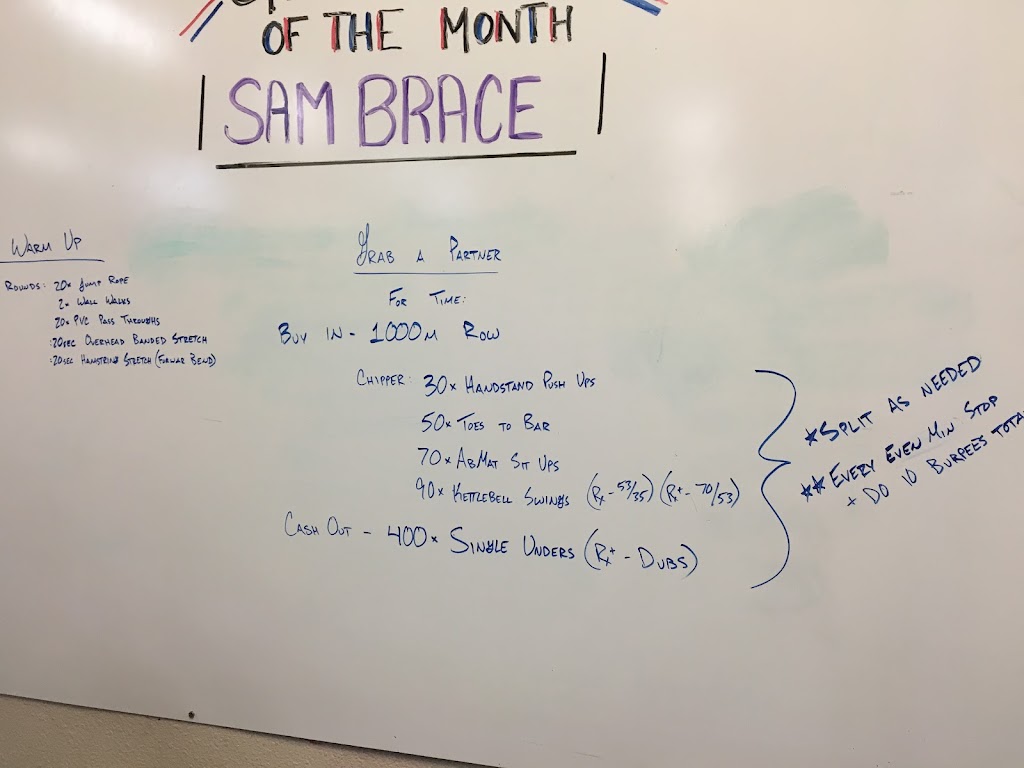 OF THE MONTH
SAM BRACE
WARM UP
ROUNDS: 20x JUMP ROPE
2x WALL WALKS
20x PVC PASS THROUGHS
:20sec OVERHEAD BANDED STRETCH
:20sec HAMSTRING STRETCH (FORWAR BEND)
GRAB A PARTNER
FOR TIME:
BUY IN - 1000m ROW
CHIPPER: 30x HANDSTAND PUSH UPS
50x TOES TO BAR
70x ABMAT SIT UPS
90x KETTLEBELL SWINGS (Rx - 53/35) (Rx+ - 70/53)
CASH OUT - 400x SINGLE UNDERS (Rx+ - DUBS)
*SPLIT AS NEEDED
**EVERY EVEN MIN STOP
+ DO 10 BURPEES TOTAL